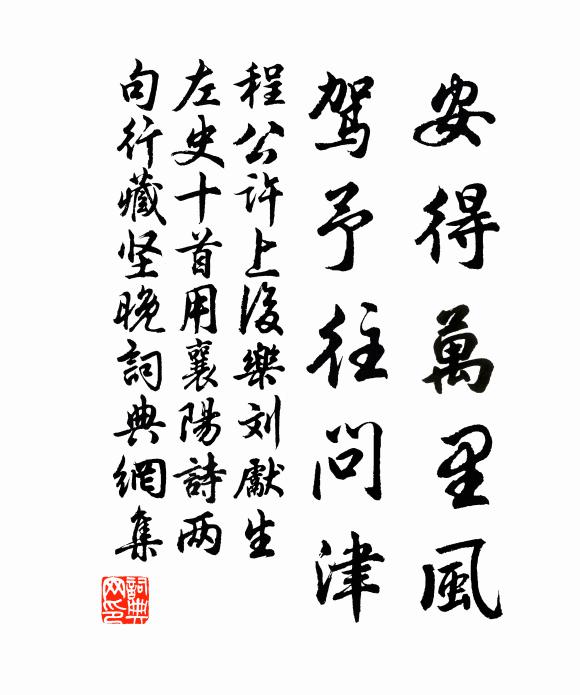 安得萬里風
駕予往問津
程公许上後樂刘獻生
左史十首用襄陽詩两
句行藏坚晚詞典網集
詞典網印